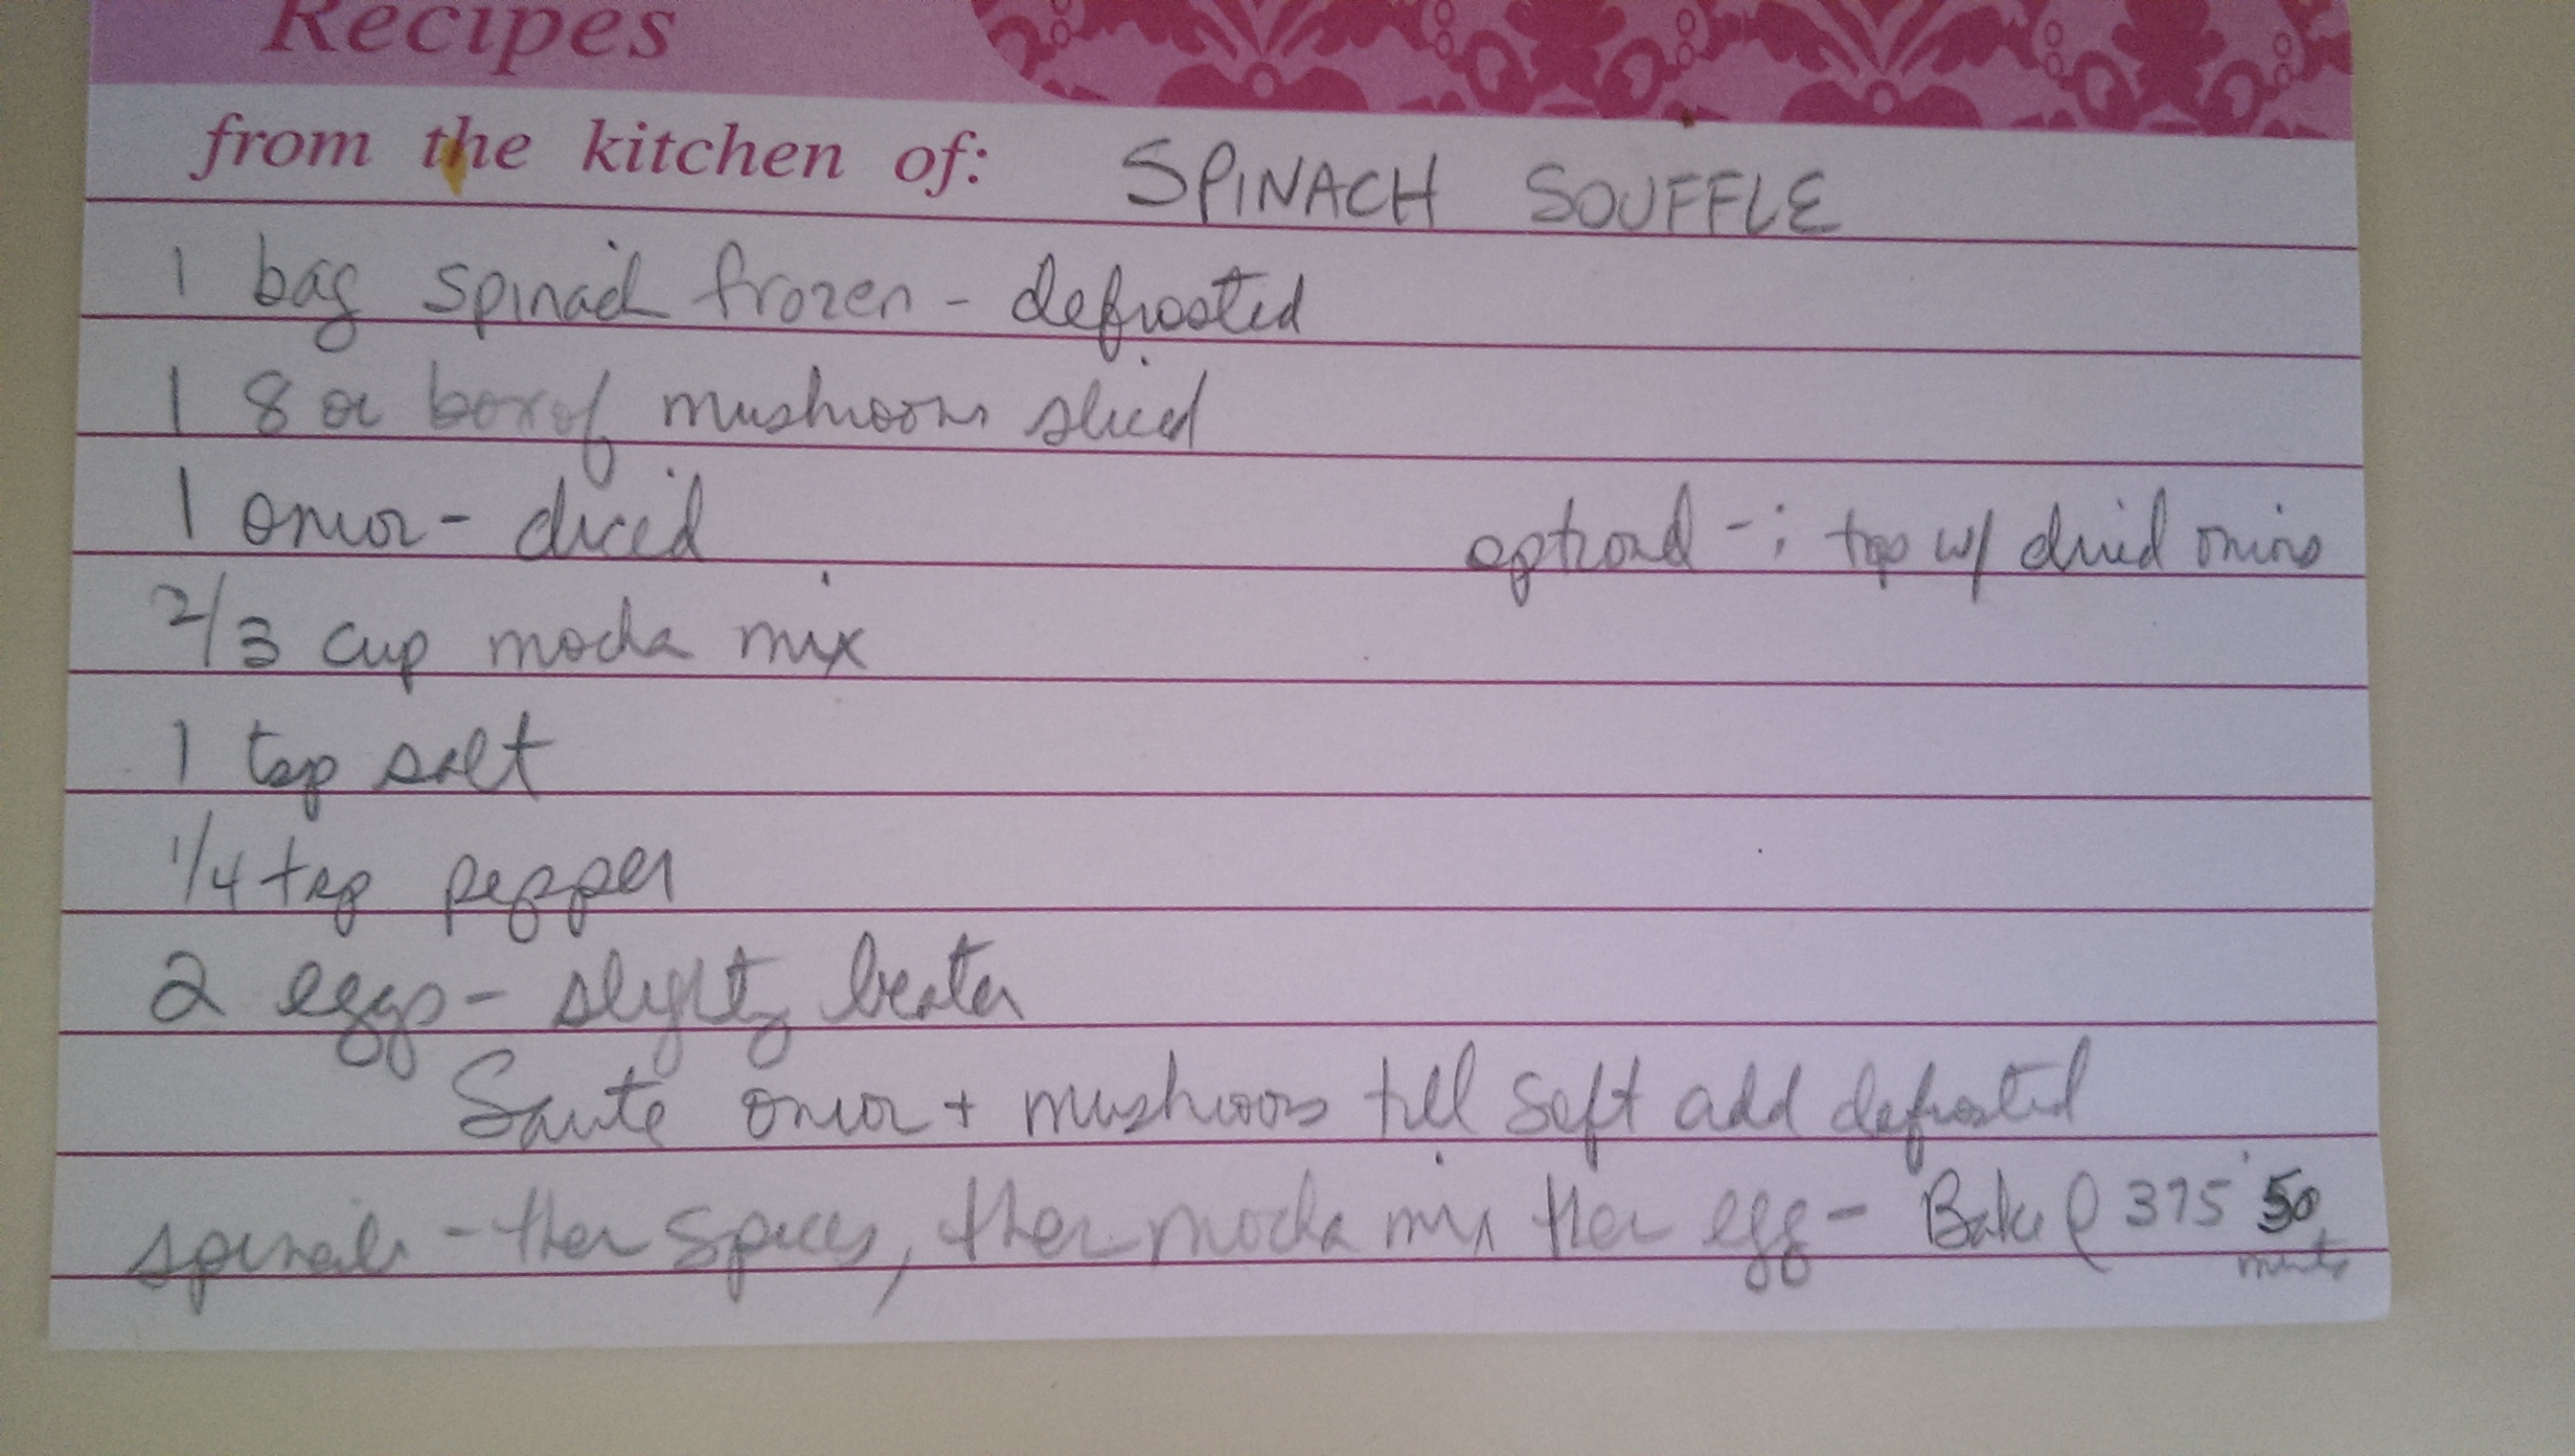 Recipes
from the kitchen of: SPINACH SOUFFLE
1 bag spinach frozen - defrosted
1 8 oz box of mushrooms sliced
1 onion - diced
optional - : top w/ dried onions
2/3 cup mocha mix
1 tsp salt
1/4 tsp pepper
2 eggs - slightly beaten
Saute onion + mushrooms till soft add defrosted
spinach - then spices, then mocha mix then egg - Bake @ 375° 50
minutes